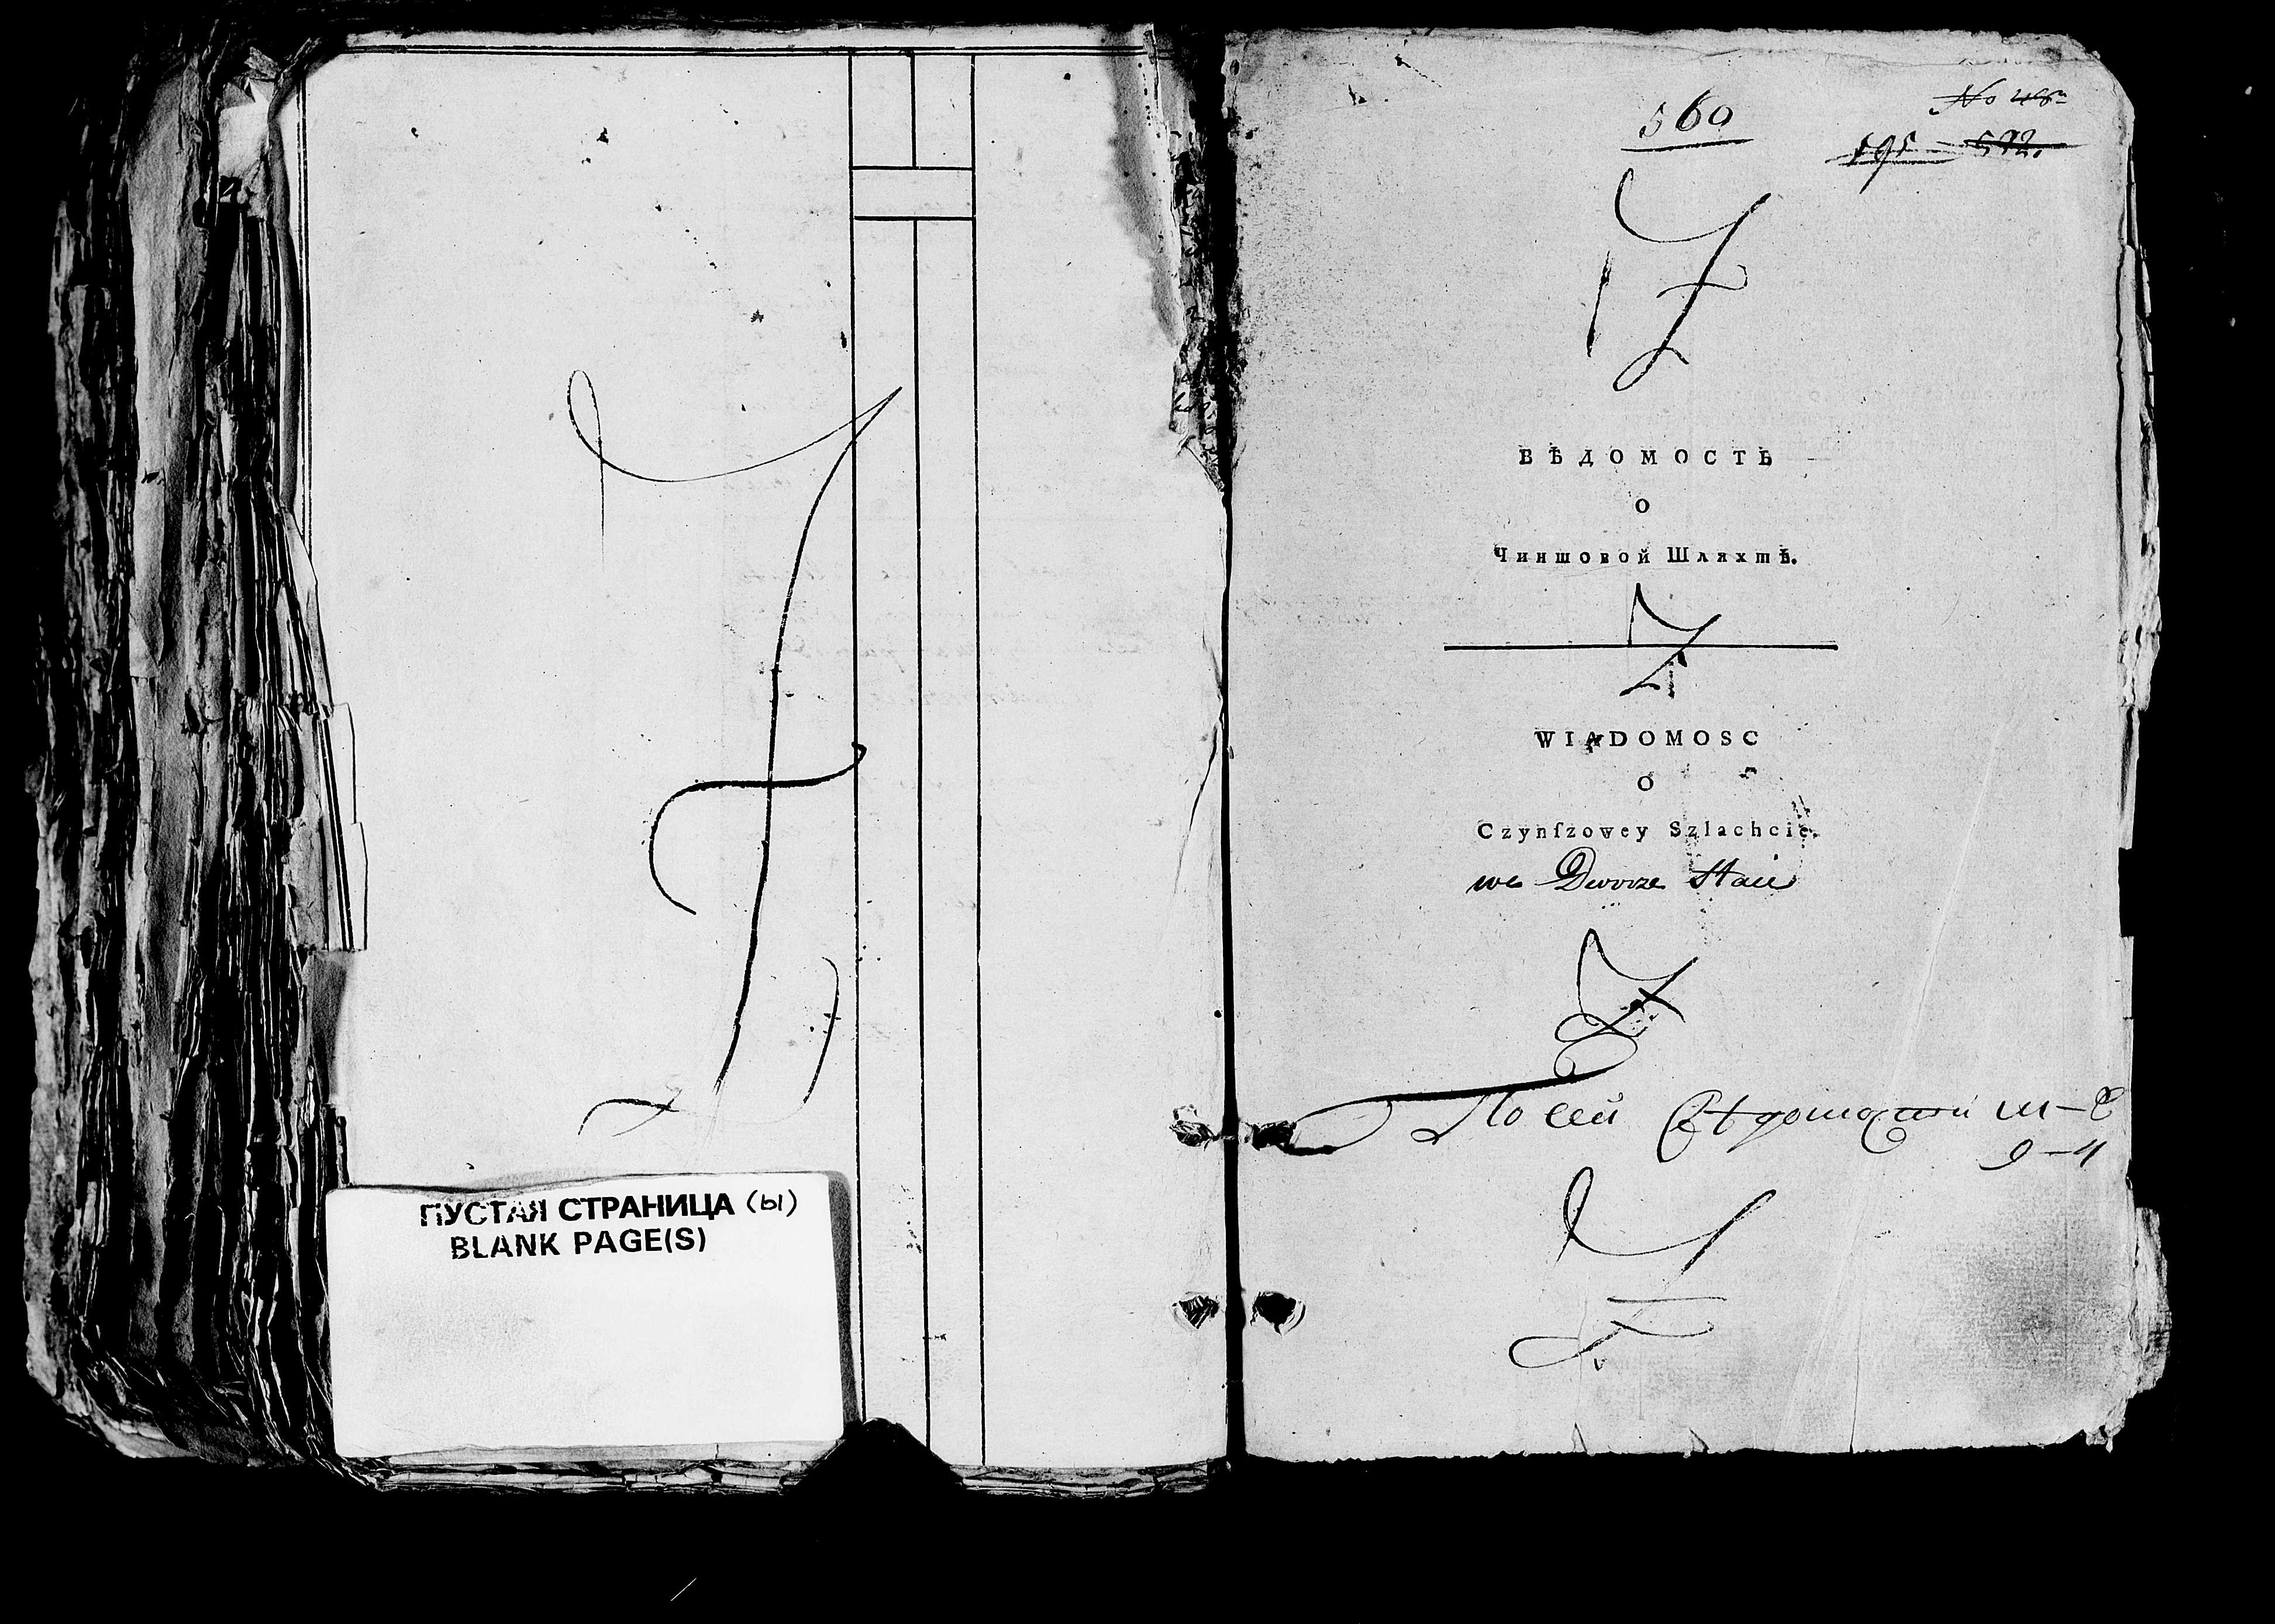 ПУСТАЯ СТРАНИЦА (ы)
BLANK PAGE(S)
560
ВѢДОМОСТЬ
о
Чиншовой Шляхтѣ.
WIADOMOSC
O
Czynſzowey Szlachcie
we Dworze
По сей Вѣдомости м–